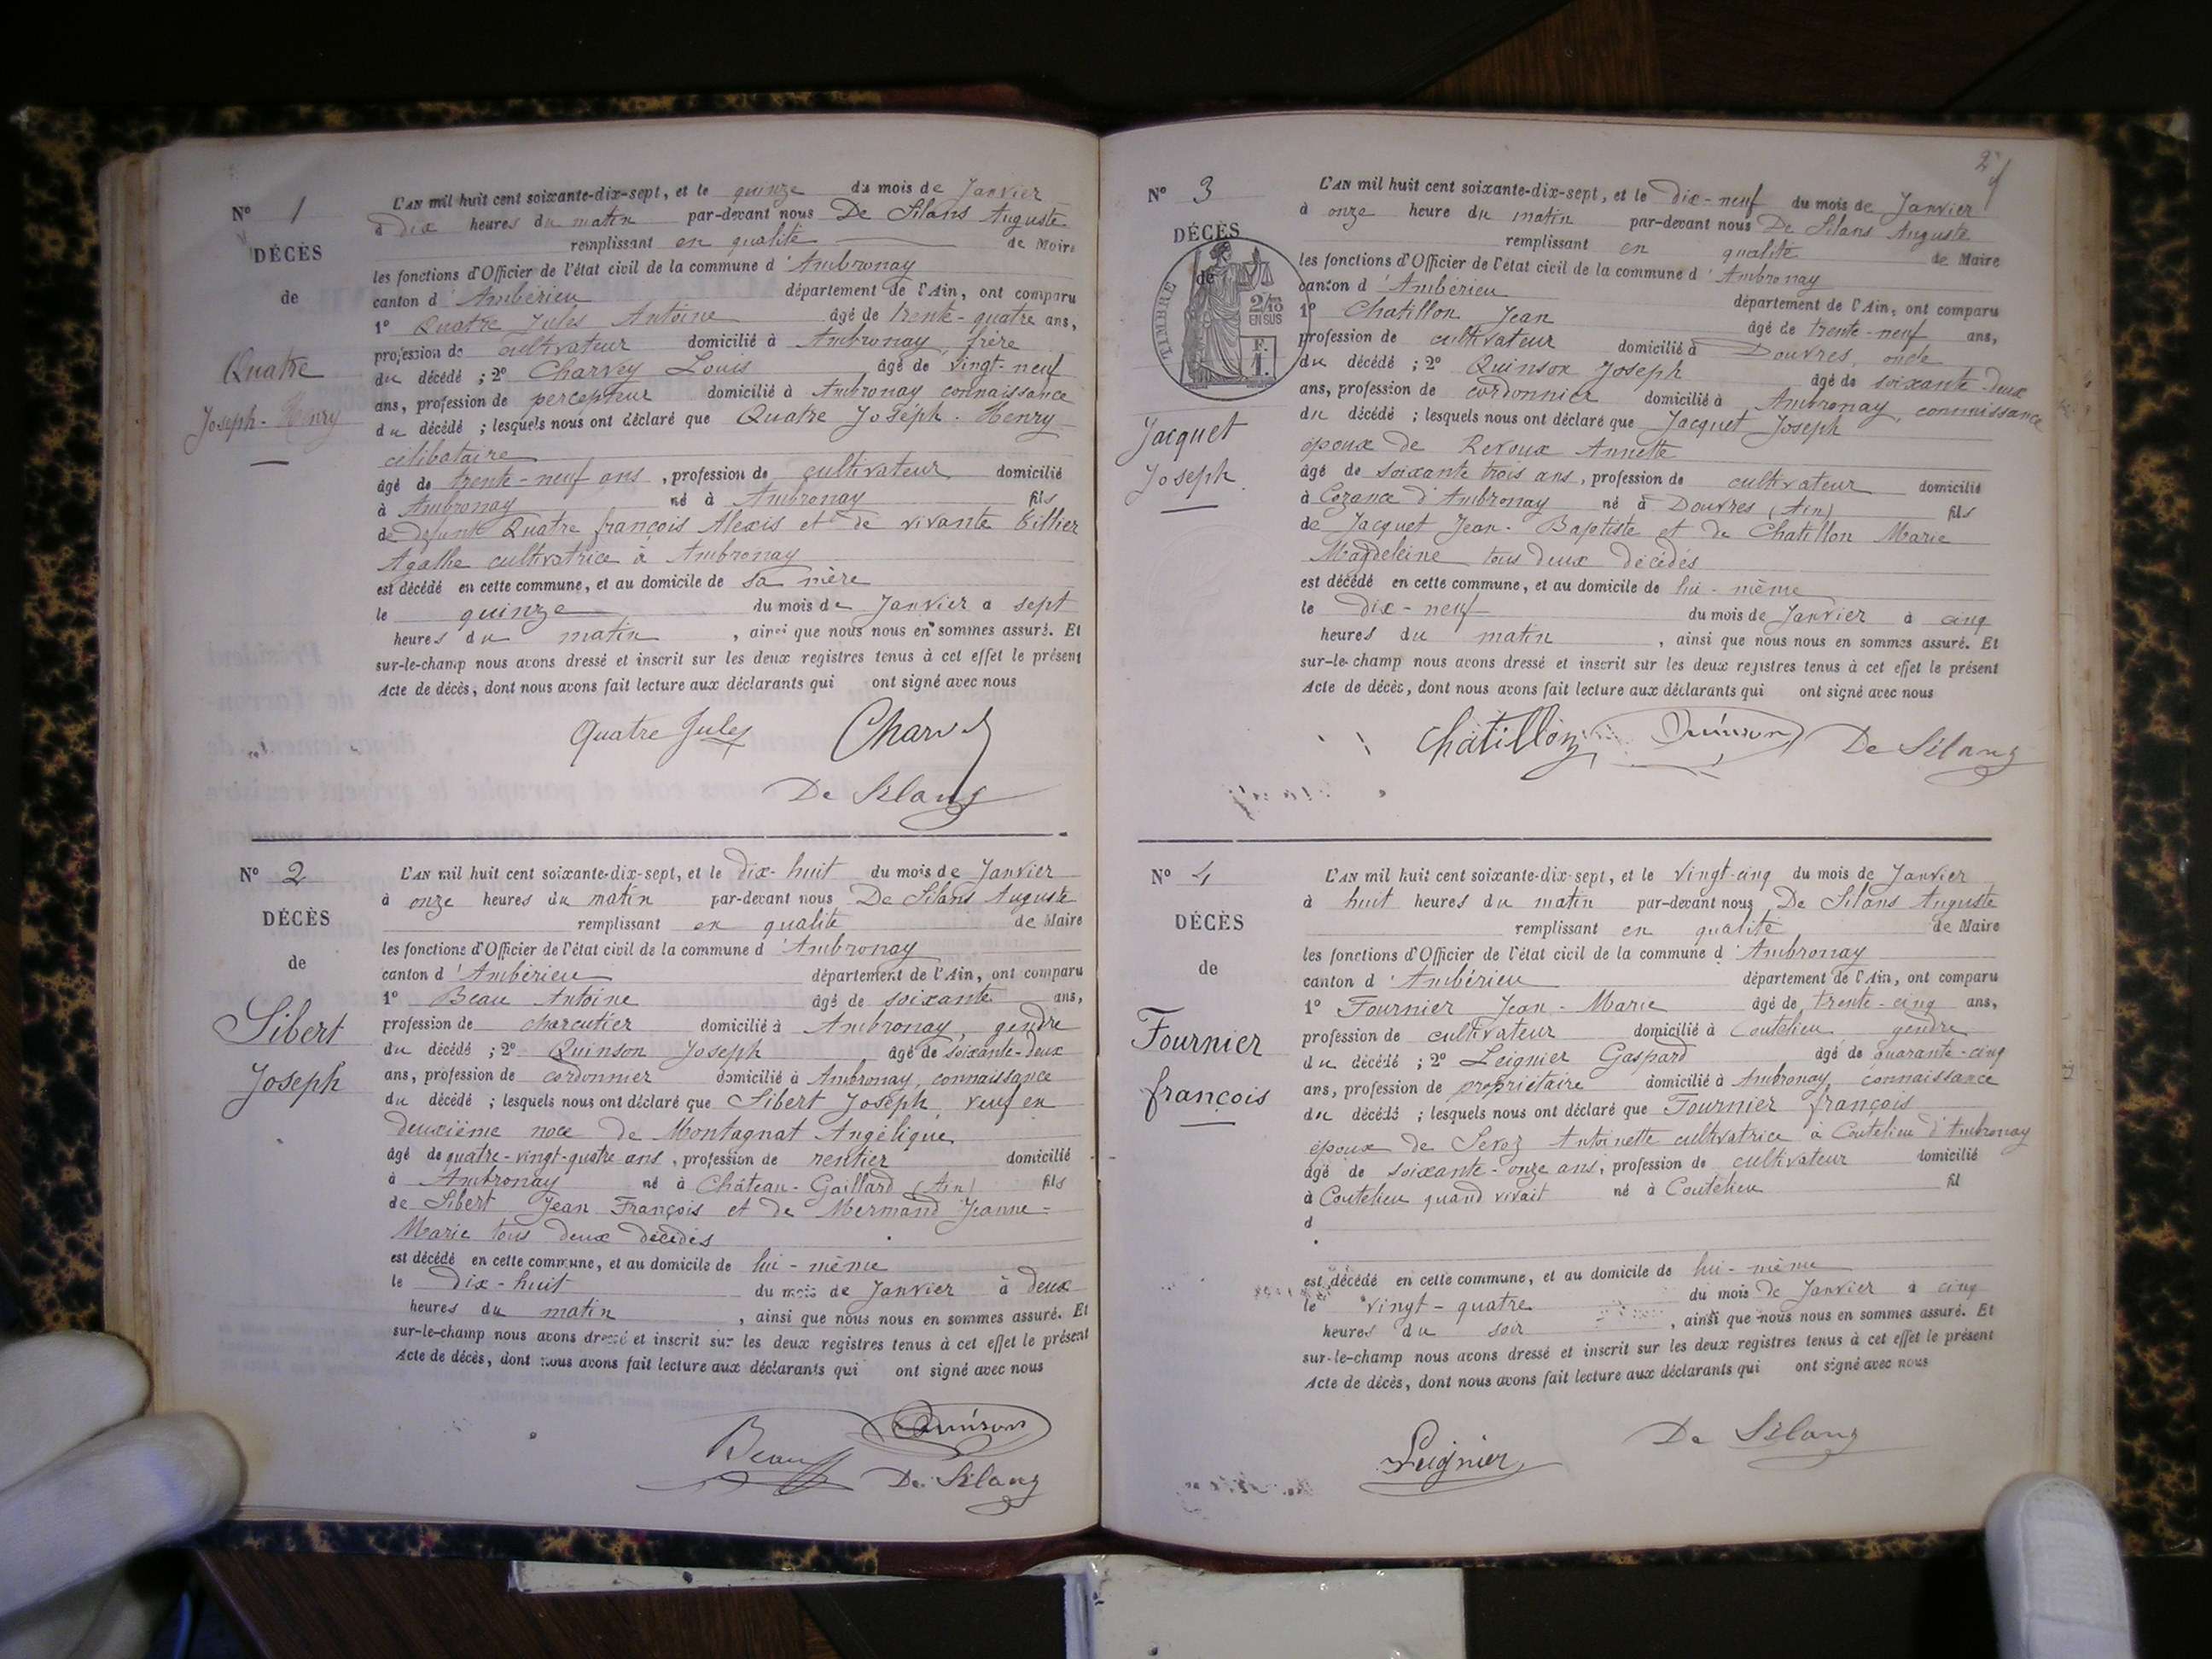 N° 1
DÉCÈS
de
Quatre
Joseph-Henry
L'AN mil huit cent soixante-dix-sept, et le quinze du mois de Janvier
à dix heures du matin par-devant nous De Silans Auguste
remplissant en qualité de Maire
les fonctions d'Officier de l'état civil de la commune d'Ambronay
canton d'Ambérieu département de l'Ain, ont comparu
1° Quatre Jules Antoine âgé de trente-quatre ans,
profession de cultivateur domicilié à Ambronay, frère
du décédé ; 2° Charvey Louis âgé de vingt-neuf
ans, profession de percepteur domicilié à Ambronay connaissance
du décédé ; lesquels nous ont déclaré que Quatre Joseph-Henry
célibataire
âgé de trente-neuf ans, profession de cultivateur domicilié
à Ambronay né à Ambronay fils
de défunt Quatre françois Alexis et de vivante Tillier
Agathe cultivatrice à Ambronay
est décédé en cette commune, et au domicile de sa mère
le quinze du mois de Janvier a sept
heures du matin, ainsi que nous nous en sommes assuré. Et
sur-le-champ nous avons dressé et inscrit sur les deux registres tenus à cet effet le présent
Acte de décès, dont nous avons fait lecture aux déclarants qui ont signé avec nous
Quatre Jules
De Silans
N° 2
DÉCÈS
de
Sibert
Joseph
L'AN mil huit cent soixante-dix-sept, et le dix-huit du mois de Janvier
à onze heures du matin par-devant nous De Silans Auguste
remplissant en qualité de Maire
les fonctions d'Officier de l'état civil de la commune d'Ambronay
canton d'Ambérieu département de l'Ain, ont comparu
1° Beau Antoine âgé de soixante ans,
profession de charcutier domicilié à Ambronay, gendre
du décédé ; 2° Quinson Joseph âgé de soixante-deux
ans, profession de cordonnier domicilié à Ambronay, connaissance
du décédé ; lesquels nous ont déclaré que Sibert Joseph, veuf en
deuxième noce de Montagnat Angélique
âgé de quatre-vingt-quatre ans, profession de rentier domicilié
à Ambronay né à Château-Gaillard (Ain) fils
de Sibert Jean François et de Mermand Jeanne=
Marie tous deux décédés
est décédé en cette commune, et au domicile de lui-même
le dix-huit du mois de Janvier à deux
heures du matin, ainsi que nous nous en sommes assuré. Et
sur-le-champ nous avons dressé et inscrit sur les deux registres tenus à cet effet le présent
Acte de décès, dont nous avons fait lecture aux déclarants qui ont signé avec nous
Quinson
Beau
De Silans
2
N° 3
DÉCÈS
de
TIMBRE
2/10
EN SUS
F.
1.
Jacquet
Joseph
L'AN mil huit cent soixante-dix-sept, et le dix-neuf du mois de Janvier
à onze heure du matin par-devant nous De Silans Auguste
remplissant en qualité de Maire
les fonctions d'Officier de l'état civil de la commune d'Ambronay
canton d'Ambérieu département de l'Ain, ont comparu
1° Chatillon Jean âgé de trente-neuf ans,
profession de cultivateur domicilié à Douvres, oncle
du décédé ; 2° Quinson Joseph âgé de soixante-deux
ans, profession de cordonnier domicilié à Ambronay, connaissance
du décédé ; lesquels nous ont déclaré que Jacquet Joseph
époux de Revoux Annette
âgé de soixante trois ans, profession de cultivateur domicilié
à Cozance d'Ambronay né à Douvres (Ain) fils
de Jacquet Jean-Baptiste et de Chatillon Marie
Magdeleine tous deux décédés
est décédé en cette commune, et au domicile de lui-même
le dix-neuf du mois de Janvier à cinq
heures du matin, ainsi que nous nous en sommes assuré. Et
sur-le-champ nous avons dressé et inscrit sur les deux registres tenus à cet effet le présent
Acte de décès, dont nous avons fait lecture aux déclarants qui ont signé avec nous
Chatillon Quinson De Silans
N° 4
DÉCÈS
de
Fournier
françois
L'AN mil huit cent soixante-dix-sept, et le vingt-cinq du mois de Janvier
à huit heures du matin par-devant nous De Silans Auguste
remplissant en qualité de Maire
les fonctions d'Officier de l'état civil de la commune d'Ambronay
canton d'Ambérieu département de l'Ain, ont comparu
1° Fournier Jean-Marie âgé de trente-cinq ans,
profession de cultivateur domicilié à Coutelieu gendre
du décédé ; 2° Leignier Gaspard âgé de quarante-cinq
ans, profession de propriétaire domicilié à Ambronay, connaissance
du décédé ; lesquels nous ont déclaré que Fournier françois
époux de Sevoz Antoinette cultivatrice à Coutelieu d'Ambronay
âgé de soixante-onze ans, profession de cultivateur domicilié
à Coutelieu quand vivait né à Coutelieu fil
d
est décédé en cette commune, et au domicile de lui-même
le vingt-quatre du mois de Janvier à cinq
heures du soir, ainsi que nous nous en sommes assuré. Et
sur-le-champ nous avons dressé et inscrit sur les deux registres tenus à cet effet le présent
Acte de décès, dont nous avons fait lecture aux déclarants qui ont signé avec nous
Leignier De Silans